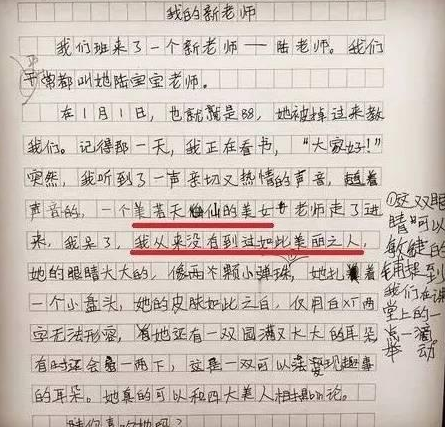 我的新老师
我们班来了一个新老师——陆老师。我们
平常都叫她陆宝宝老师。
在1月1日，也就是88，她被掉过来教
我们。记得那一天，我正在看书，“大家好！”
突然，我听到了一声亲切又热情的声音，
声音的，一个美若天仙的美女老师走了进
来，我呆了，我从来没有到过如此美丽之人，
她的眼睛大大的，像两个颗小弹珠，她扎着
一个小盘头，她的皮肤如此之白，仅用白XT两
字无法形容，她还有一双圆满又大大的耳朵
有时还会一两下，这是一双可以发现趣事
的耳朵。她真的可以和四大美人相提论。
①这双眼
睛可以
敏捷的
捕捉到
我们在讲
堂上的一
点一滴
举动